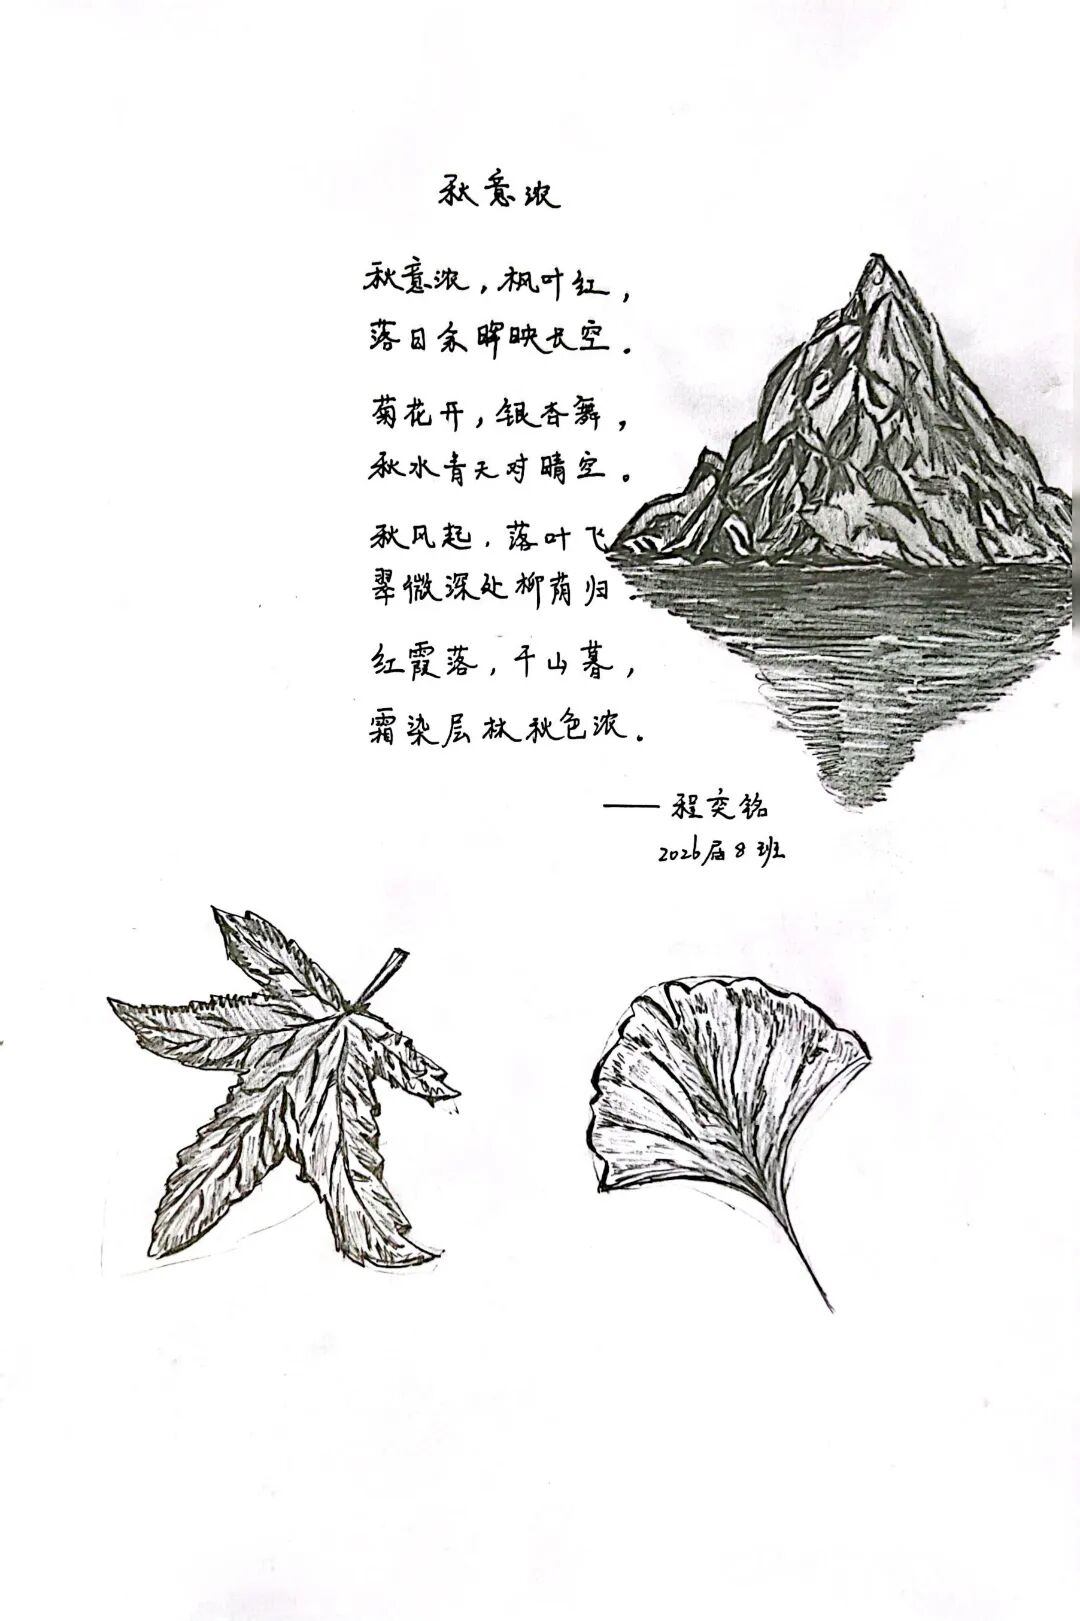 秋意浓
秋意浓，枫叶红，
落日余晖映长空。
菊花开，银杏舞，
秋水青天对晴空。
秋风起，落叶飞
翠微深处柳荫归。
红霞落，千山暮，
霜染层林秋色浓。
——程奕铭
2026届8班